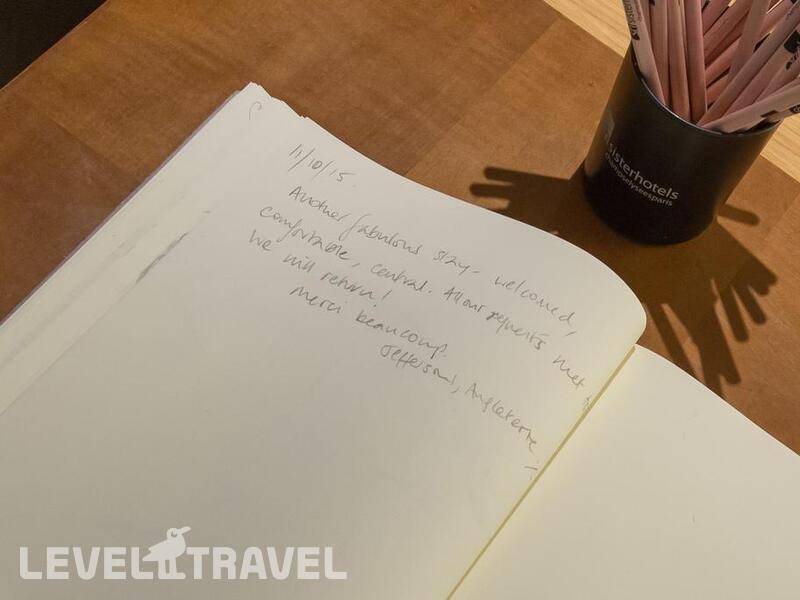 11/10/15.
Another fabulous stay - welcomed,
comfortable, central. All our requests met
We will return!
Merci beaucoup.
Jeffersons, Angleterre
sisterhotels
champselyseesparis
LEVEL TRAVEL